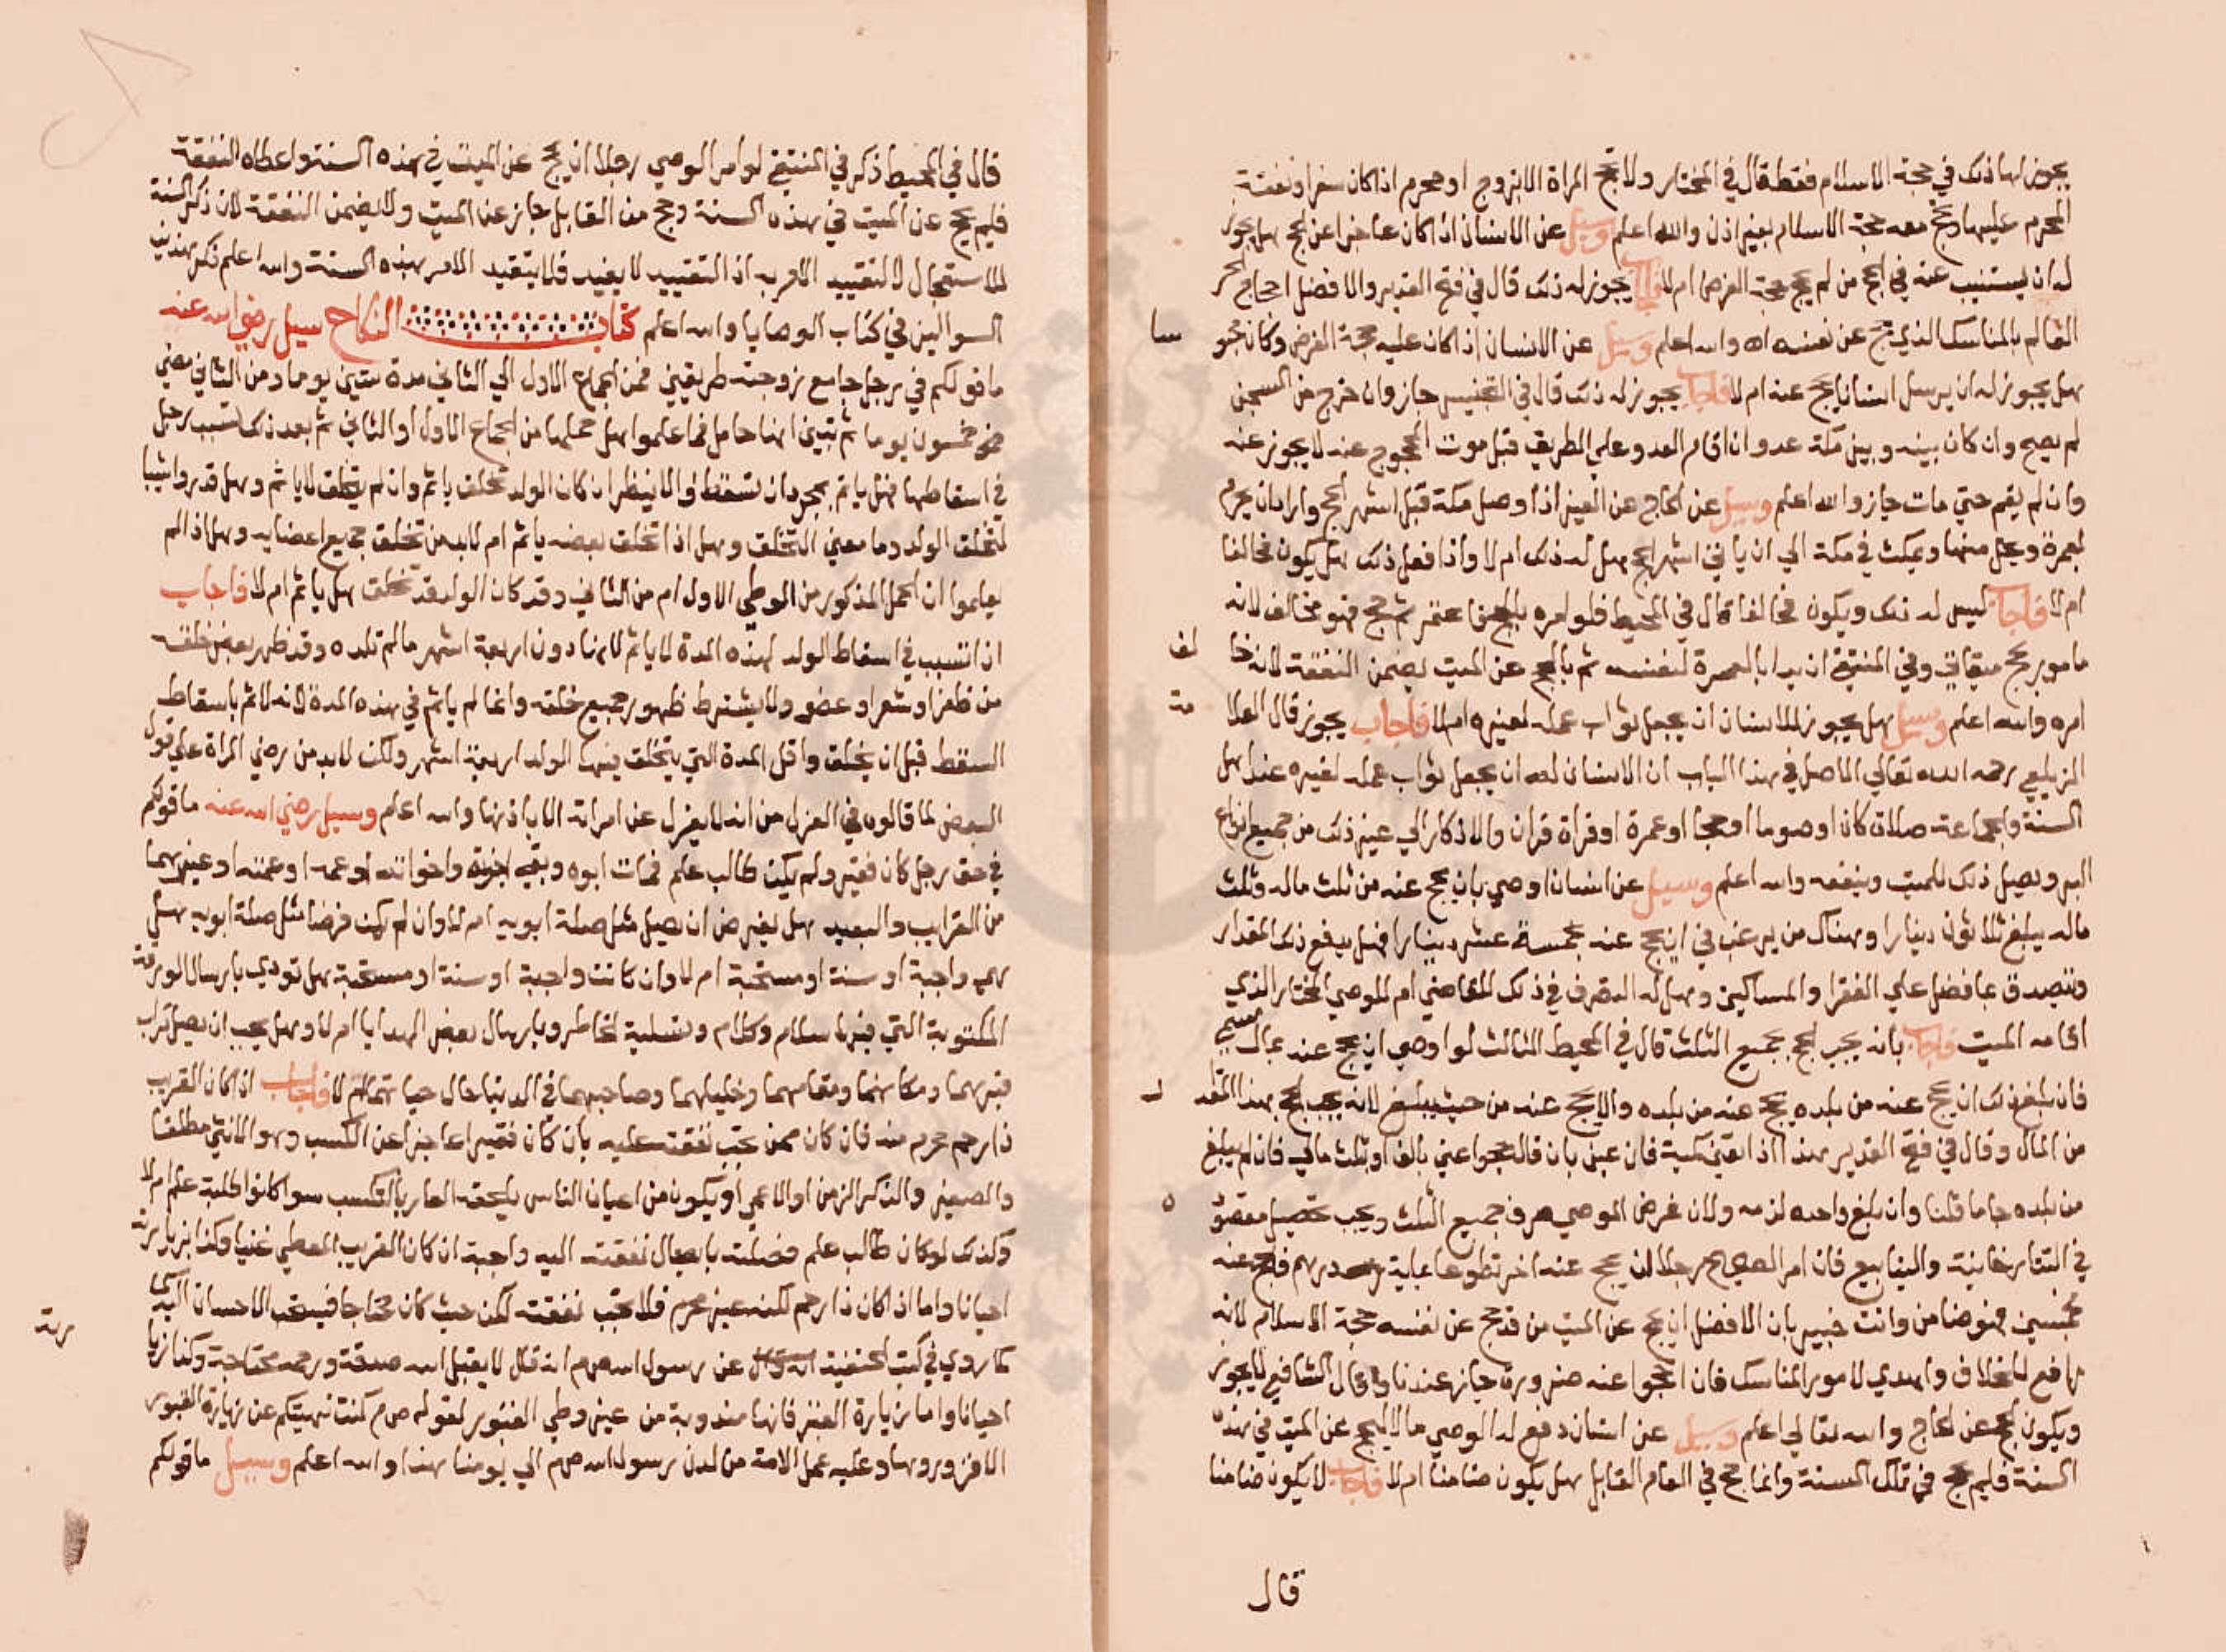 يجوز لها ذلك في حجة الاسلام فقط قال في المختار ولا تحج المراة الا بزوج او محرم اذا كان سفرا ونفقة
المحرم عليها وتحج معه حجة الاسلام بغير اذن والله اعلم وسيل عن الانسان اذا كان عاجزا عن الحج هل يجوز
له ان يستنيب عنه في الحج من لم يحج حجة الفرض ام لا فاجاب يجوز له ذلك قال في فتح القدير والافضل احجاج الحر
العالم بالمناسك الذي حج عن نفسه اه والله اعلم وسيل عن الانسان اذا كان عليه حجة الفرض وكان محبو
سا
هل يجوز له ان يرسل انسانا يحج عنه ام لا فاجاب يجوز له ذلك قال في التجنيس جاز وان خرج من السجن
لم يصح وان كان بينه وبين مكة عدو ان اقام العدو علي الطريق قبل موت المحجوج عنه لا يجوز عنه
وان لم يقم حتي مات جاز والله اعلم وسيل عن الحاج عن الغير اذا وصل مكة قبل اشهر الحج واراد ان يحرم
بعمرة ويحل منها ويمكث في مكة الي ان ياتي اشهر الحج هل له ذلك ام لا واذا فعل ذلك هل يكون مخالفا
ام لا فاجاب ليس له ذلك ويكون مخالفا قال في المحيط فلو امره بالحج فاعتمر ثم حج فهو مخالف لانه
مامور بحج ميقاتي وفي المنتقي ان بدا بالعمرة لنفسه ثم بالحج عن الميت يضمن النفقة لانه خا
لف
امره والله اعلم وسيل هل يجوز للانسان ان يجعل ثواب عمله لغيره ام لا فاجاب يجوز قال العلا
مة
الزيلعي رحمه الله تعالي الاصل في هذا الباب ان الانسان له ان يجعل ثواب عمله لغيره عند اهل
السنة والجماعة صلاة كان او صوما او حجا او عمرة او قراة قران والاذكار الي غير ذلك من جميع انواع
البر ويصل ذلك للميت وينفعه والله اعلم وسيل عن انسان اوصي بان يحج عنه من ثلث ماله وثلث
ماله يبلغ ثلاثون دينارا وهناك من يرغب في ان يحج عنه بخمسة عشر دينارا فهل يدفع ذلك المقدار
ونتصدق بما فضل علي الفقرا والمساكين وهل له التصرف في ذلك للقاضي ام للوصي المختار الذي
اقامه الميت فاجاب بانه يجب الحج بجميع الثلث قال في المحيط الثالث لو اوصي ان يحج عنه بمال مسمي
فان بلغ ذلك ان يحج عنه من بلده يحج عنه من بلده والا يحج عنه من حيث يبلغ لانه يجب الحج بهذا المقد
ار
من المال وقال في فتح القدير هذا اذا لم يعين كمية فان عين بان قال حجوا عني بالف او بثلث مالي فان لم يبلغ
من بلده جاما قلنا وان بلغ واحده لزمه ولان غرض الموصي صرف جميع الثلث ويجب تحصيل مقصو
ه
في التتارخانية والينابيع فان امر الصحيح رجلا ان يحج عنه اخر تطوعا بماية درهم فحج عنه
بخمسين فهو ضامن وانت خبير بان الافضل ان يحج عن الميت من قد حج عن نفسه حجة الاسلام لانه
رافع للخلاف واهدي لامور المناسك فان احجوا عنه ضرورة جايز عندنا وقال الشافعي لا يجوز
ويكون الحج عن الحاج والله تعالي اعلم وسيل عن انسان دفع له الوصي مالا ليحج عن الميت في هذه
السنة فلم يحج في تلك السنة وانما حج في العام القابل هل يكون ضامنا ام لا فاجاب لا يكون ضامنا
قال
قال في المحيط ذكر في المنتقي لو امر الوصي رجلا ان يحج عن الميت في هذه السنة واعطاه النفقة
فلم يحج عن الميت في هذه السنة وحج من القابل جاز عن الميت ولا يضمن النفقة لان ذكر السنة
للاستعجال لا لتقييد الامر به اذ التقييد لا يفيد فلا يتقيد الامر بهذه السنة والله اعلم ذكر هذين
السوالين في كتاب الوصايا والله اعلم كتاب النكاح سيل رضي الله عنه
ما قولكم في رجل جامع زوجته طريقين فمن الجماع الاول الي الثاني مدة ستين يوما ومن الثاني مضي
نحو خمسون يوما ثم تبين انها حامل فما علموا هل حملها من الجماع الاول او الثاني ثم بعد ذلك تسبب رجل
في اسقاطها فهل ياثم بمجرد ان تسقط والا ينظر ان كان الولد تخلق ياثم وان لم يتخلق لا ياثم وهل قدروا شيا
لتخلق الولد وما معني التخلق وهل اذا تخلق بعضه ياثم ام لا بد من تخلق جميع اعضايه وهل اذا لم
يعلموا ان الحمل المذكور من الوطي الاول ام من الثاني وقد كان الولد قد تخلق هل ياثم ام لا فاجاب
ان تسبب في اسقاط الولد لهذه المدة لا ياثم لانها دون اربعة اشهر مالم تلده وقد ظهر بعض خلقه
من ظفر او شعر او عضو ولا يشترط ظهور جميع خلقه وانما لم ياثم في هذه المدة لانه لا اثم باسقاط
السقط قبل ان يخلق واقل المدة التي يتخلق فيها الولد اربعة اشهر ولكن لا بد من رضي المراة علي قول
البعض لما قالوه في العزل من انه لا يعزل عن امراته الا باذنها والله اعلم وسيل رضي الله عنه ما قولكم
في حق رجل كان فقير ولم يكن طالب علم فمات ابوه وبقي اخوته واخواته او عمه او عمته او غيرهما
من القرايب والبعيد هل يفرض ان يصل مثل صلة ابويه ام لا وان لم يكن فرضا مثل صلة ابويه هل
هي واجبة او سنة او مستحبة ام لا وان كانت واجبة او سنة او مستحبة هل تودي بارسال الورقة
المكتوبة التي فيها سلام وكلام وتسلية لخاطر وبارسال بعض الهدايا ام لا وهل يجب ان يصل تراب
قبرهما ومكانهما ومقامهما وخليلهما وصاحبهما في الدنيا حال حياتهما ام لا فاجاب اذا كان القريب
ذا رحم محرم منه فان كان ممن تجب نفقته عليه بان كان فقيرا عاجزا عن الكسب وهو الانثي مطلقا
والصغير والذكر الزمن او الاعمي او يكون من اعيان الناس يلحقه العار بالتكسب سوا كانوا طلبة علم ام لا
وكذلك لو كان طالب علم فصلته بايصال نفقته اليه واجبة ان كان القريب المعطي غنيا وكذا بزيارته
احيانا واما اذا كان ذا رحم لكنه غير محرم فلا تجب نفقته لكن حيث كان محتاجا فيستحب الاحسان اليه
كما روي في كتب الحنفية عن رسول الله صم انه قال لا يقبل الله صدقة ورحمه محتاجة وكذا زيا
رته
احيانا واما زيارة القبر فانها مندوبة من غير وطي القبور لقوله صم كنت نهيتكم عن زيارة القبور
الا فزوروها وعليه عمل الامة من لدن رسول الله صم الي يومنا هذا والله اعلم وسيل ما قولكم